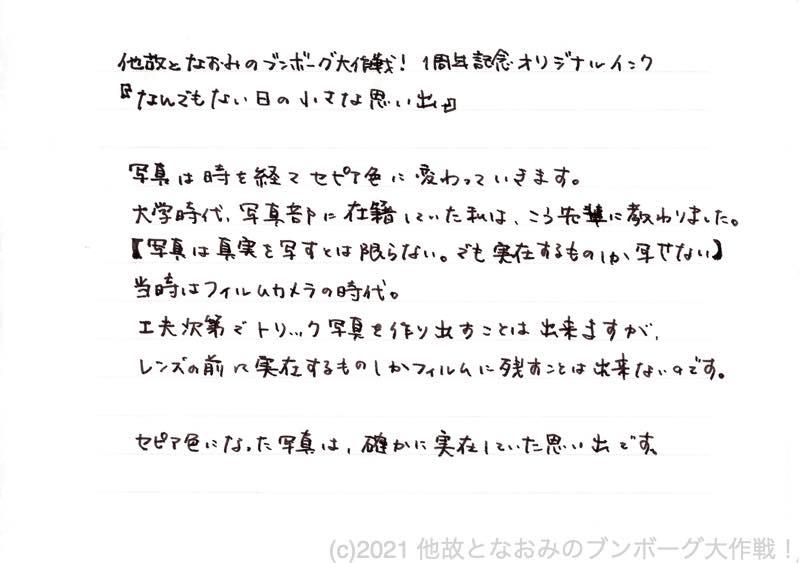 他故となおみのブンボーグ大作戦！ 1周年記念オリジナルインク
『なんでもない日の小さな思い出』
写真は時を経てセピア色に変わっていきます。
大学時代、写真部に在籍していた私は、こう先輩に教わりました。
【写真は真実を写すとは限らない。でも実在するものしか写せない】
当時はフィルムカメラの時代。
工夫次第でトリック写真を作り出すことは出来ますが、
レンズの前に実在するものしかフィルムに残すことは出来ないのです。
セピア色になった写真は、確かに実在していた思い出です。
(c)2021 他故となおみのブンボーグ大作戦！